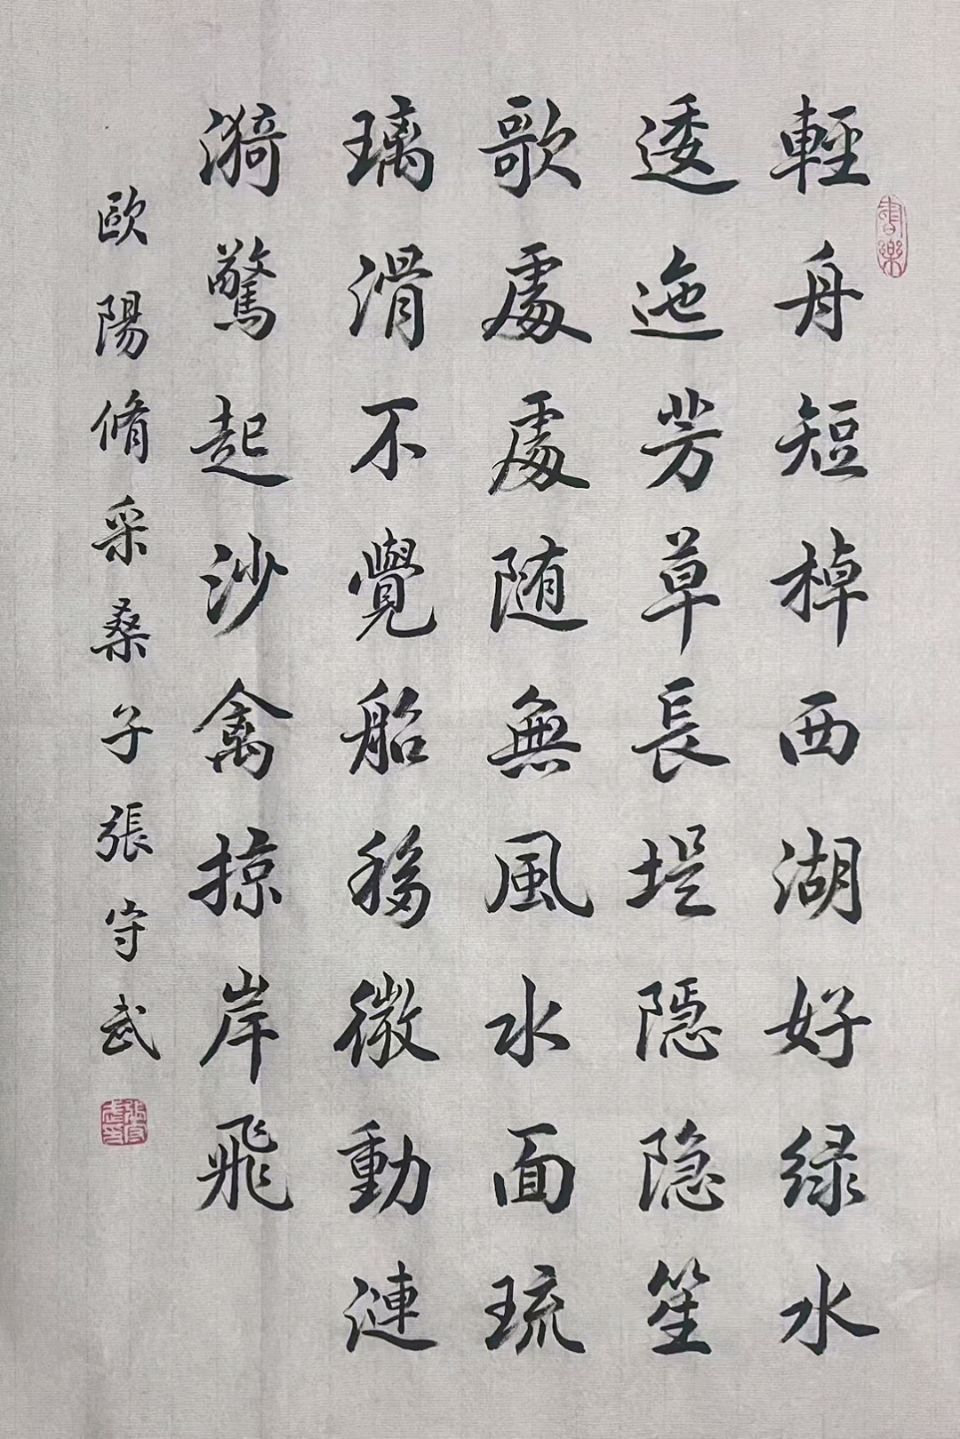 輕舟短棹西湖好绿水
逶迤芳草長堤隱隐笙
歌處處随無風水面琉
璃滑不覺船移微動漣
漪驚起沙禽掠岸飛
歐陽脩采桑子張守武
書樂
張守武印